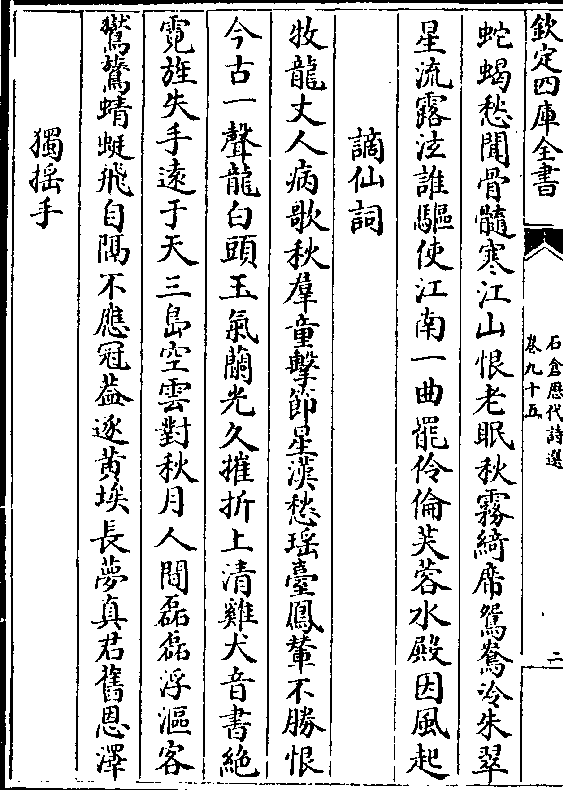 欽定四庫全書
石倉歷代詩選
卷九十五
二
蛇蝎愁聞骨髓寒江山恨老眠秋霧綺席鴛鴦冷朱翠
星流露泫誰驅使江南一曲罷伶倫芙蓉水殿因風起
謫仙詞
牧龍丈人病歌秋羣童擊節星漢愁瑶臺鳳輦不勝恨
今古一聲龍白頭玉氣蘭光久摧折上清雞犬音書絶
霓旌失手遠于天三島空雲對秋月人間磊磊浮漚客
鸎鸎蜻蜓飛自隔不應冠葢逐黄埃長夢真君舊恩澤
獨摇手